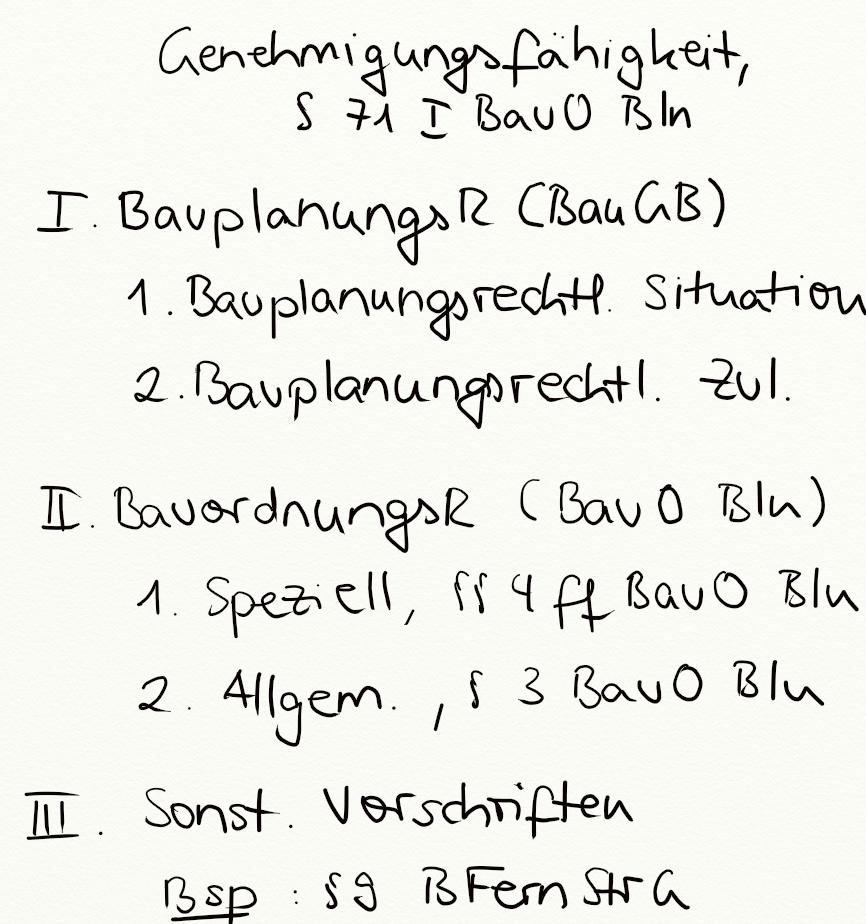 Genehmigungsfähigkeit,
§ 71 I BauO Bln
I. BauplanungsR (BauGB)
1. Bauplanungsrechtl. Situation
2. Bauplanungsrechtl. Zul.
II. BauordnungsR (BauO Bln)
1. Speziell, §§ 4 ff BauO Bln
2. Allgem., § 3 BauO Bln
III. Sonst. Vorschriften
Bsp: § 9 BFernStrG